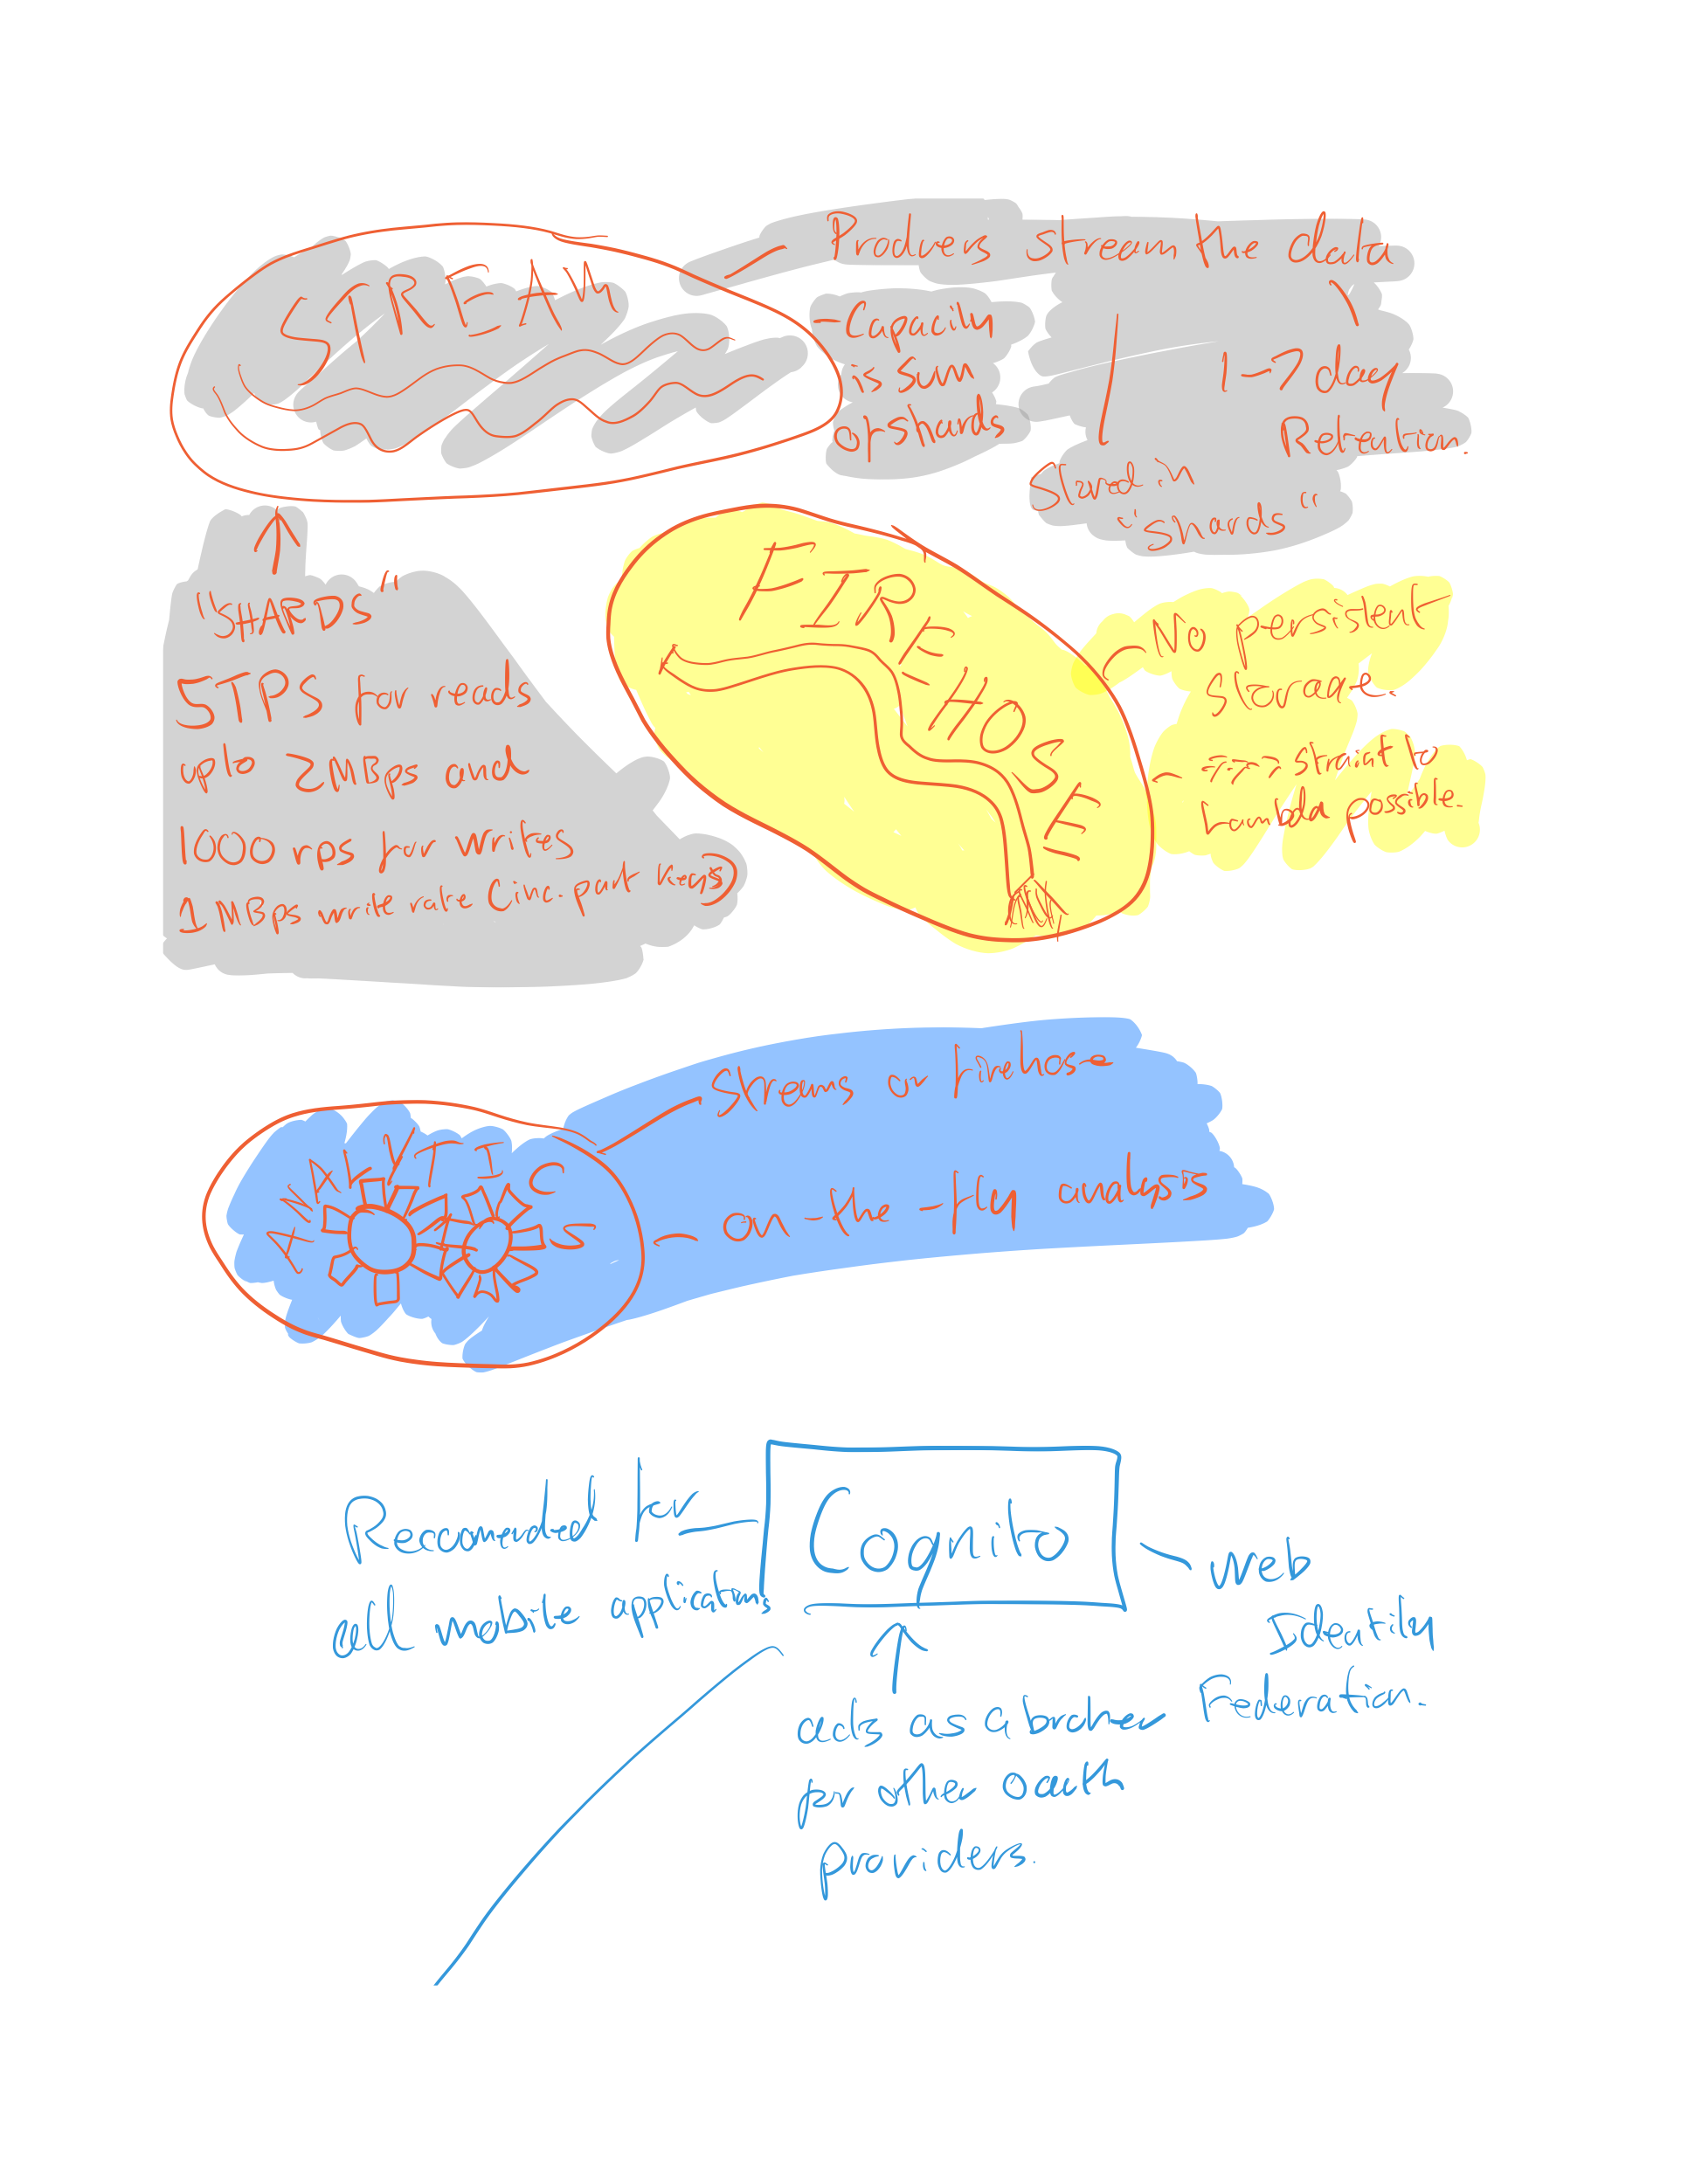 STREAM
Producers stream the data
-Capacity
is sum
of shards
1-7 day
Retention.
Stored in
"shards"
"SHARDS"
5TPS for reads
upto 2MBps and
1000 rps for writes
1 MBps write rate (inc. part keys)
FIREHOSE
No persistent
storage.
- straint to
Lambda possible.
ANALYTICS
Streams or firehose
on-the-fly analysis
Recomended for
all mobile applications
Cognito
Web
Identity
Federation.
acts as a broker
for other oauth
providers.